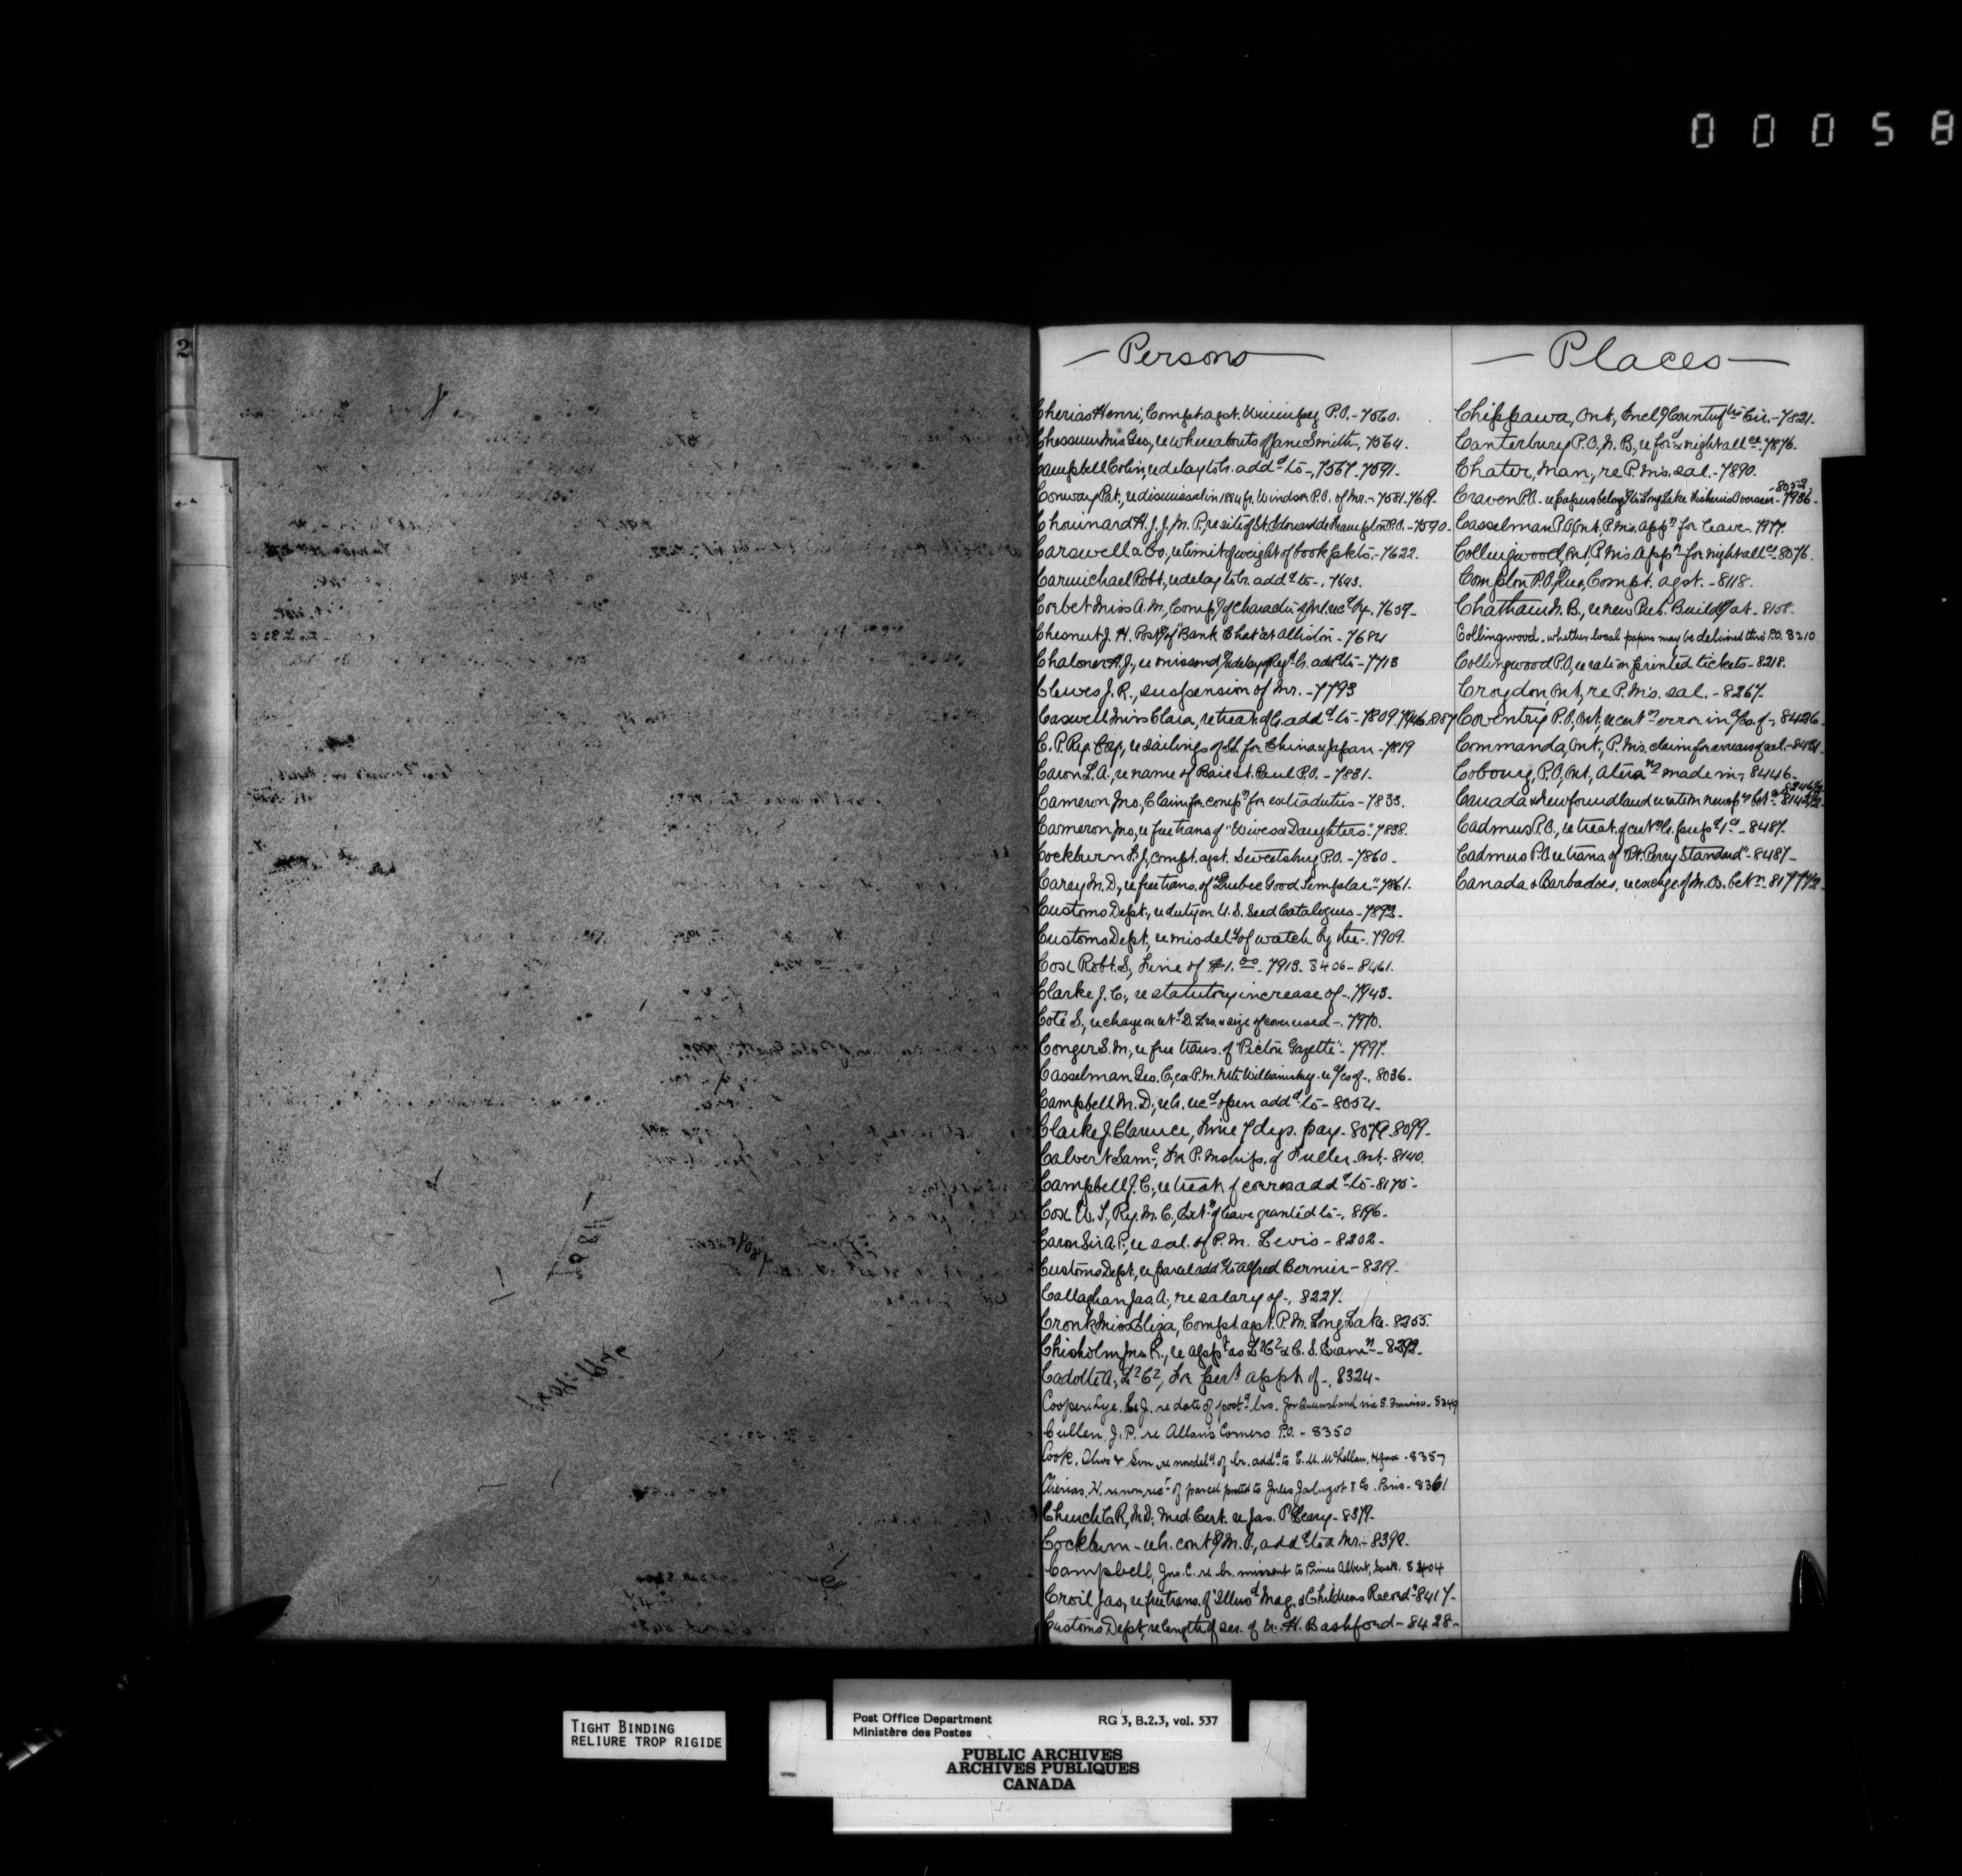 00058
2
Persons
Cherias Henri, Compt. agst. Winnipeg P.O. - 7560.
Chessum Mrs Geo, re whereabouts of Jane Smith - 7564.
Campbell Colin, re delay to lr. addd to -, 7567. 7591.
Conway Pat, re dismissal in 1884 fr. Windsor P.O. of Mr. - 7581. 7619.
Chouinard H. J. J. M. P., re site of St. Edouard de Frampton P.O. - 7590.
Carswell & Co., re limit of weight of book pkts. - 7622.
Carmichael Robt, re delay to lr. addd to -. 7643.
Corbet Miss A. M, Compg of character of lrl. recd by. 7659 -
Chesnut J. H. Postg of "Bank Chat" at Alliston - 7684
Chaloner A. J., re missendg & delay of Regd lr. addd to - 7713
Clewes J. R., suspension of Mr. - 7793
Caswell Miss Clara, re treat. of lr. addd to - 7809. 7946. 8187
C. P. Ry. Coy., re sailings of SS. for China & Japan - 7819
Caron L. A. re name of Baie St. Paul P.O. - 7831.
Cameron Jno, Claim for compn for extra duties - 7833.
Cameron Jno, re free trans. of "Wives & Daughters." 7838.
Cockburn F. J, compt. agst. Sweetsburg P.O. - 7860 -
Carey M. D, re free trans. of "Quebec Good Templar" - 7861.
Customs Dept., re duty on U. S. Seed Catalogues - 7893 -
Customs Dept, re misdely of watch by the -. 7909.
Cox Robt. S, Fine of $1.00 - 7913. 8406 - 8461.
Clarke J. C., re statutory increase of -. 7943 -
Cote S, re charge on retd D. Lrs. & size of cover used -. 7970.
Conger S. M, re free trans. of "Picton Gazette" - 7997.
Casselman Geo. C, ex P.M. Nth Williamsburg re a/cs of -, 8036 -
Campbell M. D, re lr. recd open addd to - 8054 -
Clarke J. Clarence, Fine 7 dys. pay - 8079. 8099 -
Calvert Saml, For P. Mship. of Fuller, Ont, - 8140.
Campbell J. C., re treat. of corres addd to - 8175 -
Cox W. S, Ry. M. C., Extn of leave granted to -, 8196 -
Caron Sir A. P., re sal. of P. M. Levis - 8202 -
Customs Dept, re parcel addd to Alfred Bernier - 8219 -
Callaghan Jas A., re salary of -, 8227.
Cronk Miss Eliza, Compt. agst. P. M. Long Lake. 8255.
Chisholm Jno R., re appt as L2C2 & C. S. Examn - 8293.
Cadotte A., L2C2, For pert appt of -, 8324 -
for Queensland via S. Francisco - 8349
Cullen, J. P. re Allan's Corners P.O. - 8350
Cook, Thos & Son re nondely of lr. addd to E. M. McLellan, - 8357
Cherias, H. re non rect of parcel posted to Jules Jaluzot & Co. Paris - 8361
Church C. R, M.D. Med. Cert. re Jas. O'Leary - 8379 -
Cockburn - re lr. contg M. O., addd to a Mr. - 8398 -
Campbell, Jno. C. re lr. missent to Prince Albert, Sask. 8404
Croil Jas, re free trans. of "Illusd Mag. & Childrens Record" - 8417 -
Customs Dept, re length of ser. of H. Bashford - 8428 -
Places
Chippawa, Ont, Encl of County lrs Cir. - 7821.
Canterbury P.O, N. B., re ford & night allce - 7876.
Chater, Man., re P. M's. sal. - 7890.
Craven P.O. - re papers belongg to Long Lake Fisheries Overseer - 7936 - 8052
Casselman P.O, Ont, P. M's. appn for leave. 7977.
Collingwood, Ont, P. M's appn for night allce - 8076.
Compton P.O, Que, Compt. agst. - 8118.
Chatham N. B., re new Pub. Buildg at - 8158.
Collingwood. whether local papers may be delivered thro' P.O. 8210
Collingwood P.O, re rate on printed tickets - 8218.
Croydon, Ont, re P. M's. sal. - 8267.
Coventry P.O, Ont, re certn error in a/cs. of -, 8426 -
Commanda, Ont, P. M's. claim for arrears of sal. - 8431 -
Cobourg, P.O, Ont, Alterans made in -, 8446 -
Canada & Newfoundland re rate on newspr betn - 8142 1/2 - 8246 1/2
Cadmus P.O., re treat. of cert lr. - 8487.
Cadmus P.O re trans of "Pt. Perry Standard" - 8487 -
Canada & Barbadoes, re exchge. of M. Os. betn - 8177 1/2 -
TIGHT BINDING
RELIURE TROP RIGIDE
Post Office Department RG 3, B.2.3, vol. 537
Ministère des Postes
PUBLIC ARCHIVES
ARCHIVES PUBLIQUES
CANADA